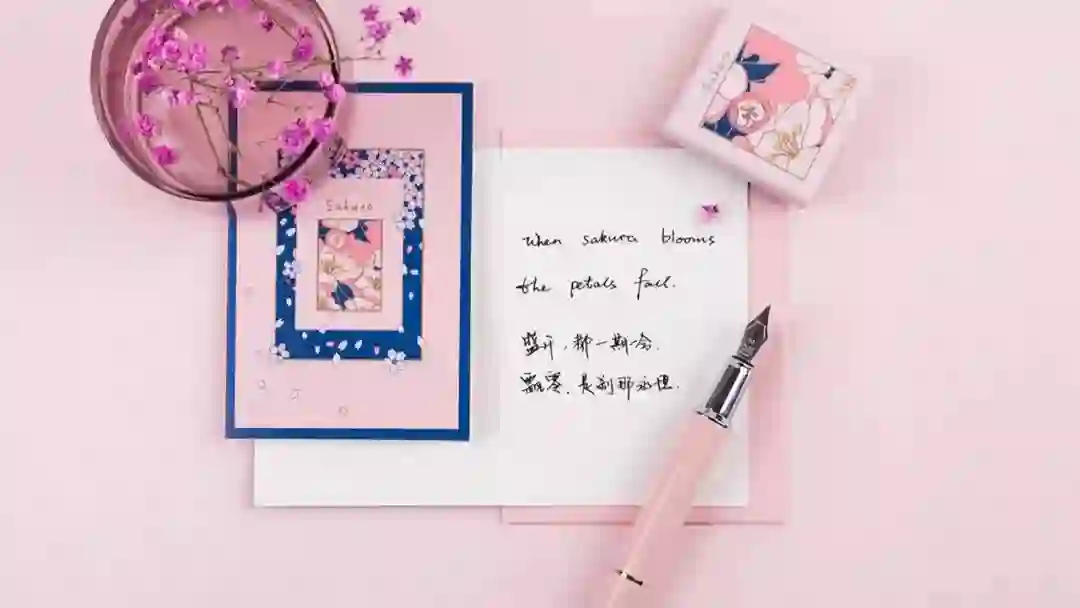 Sakura
when sakura blooms
the petals fall.
盛开,一期一会.
飘零,是刹那永恒.